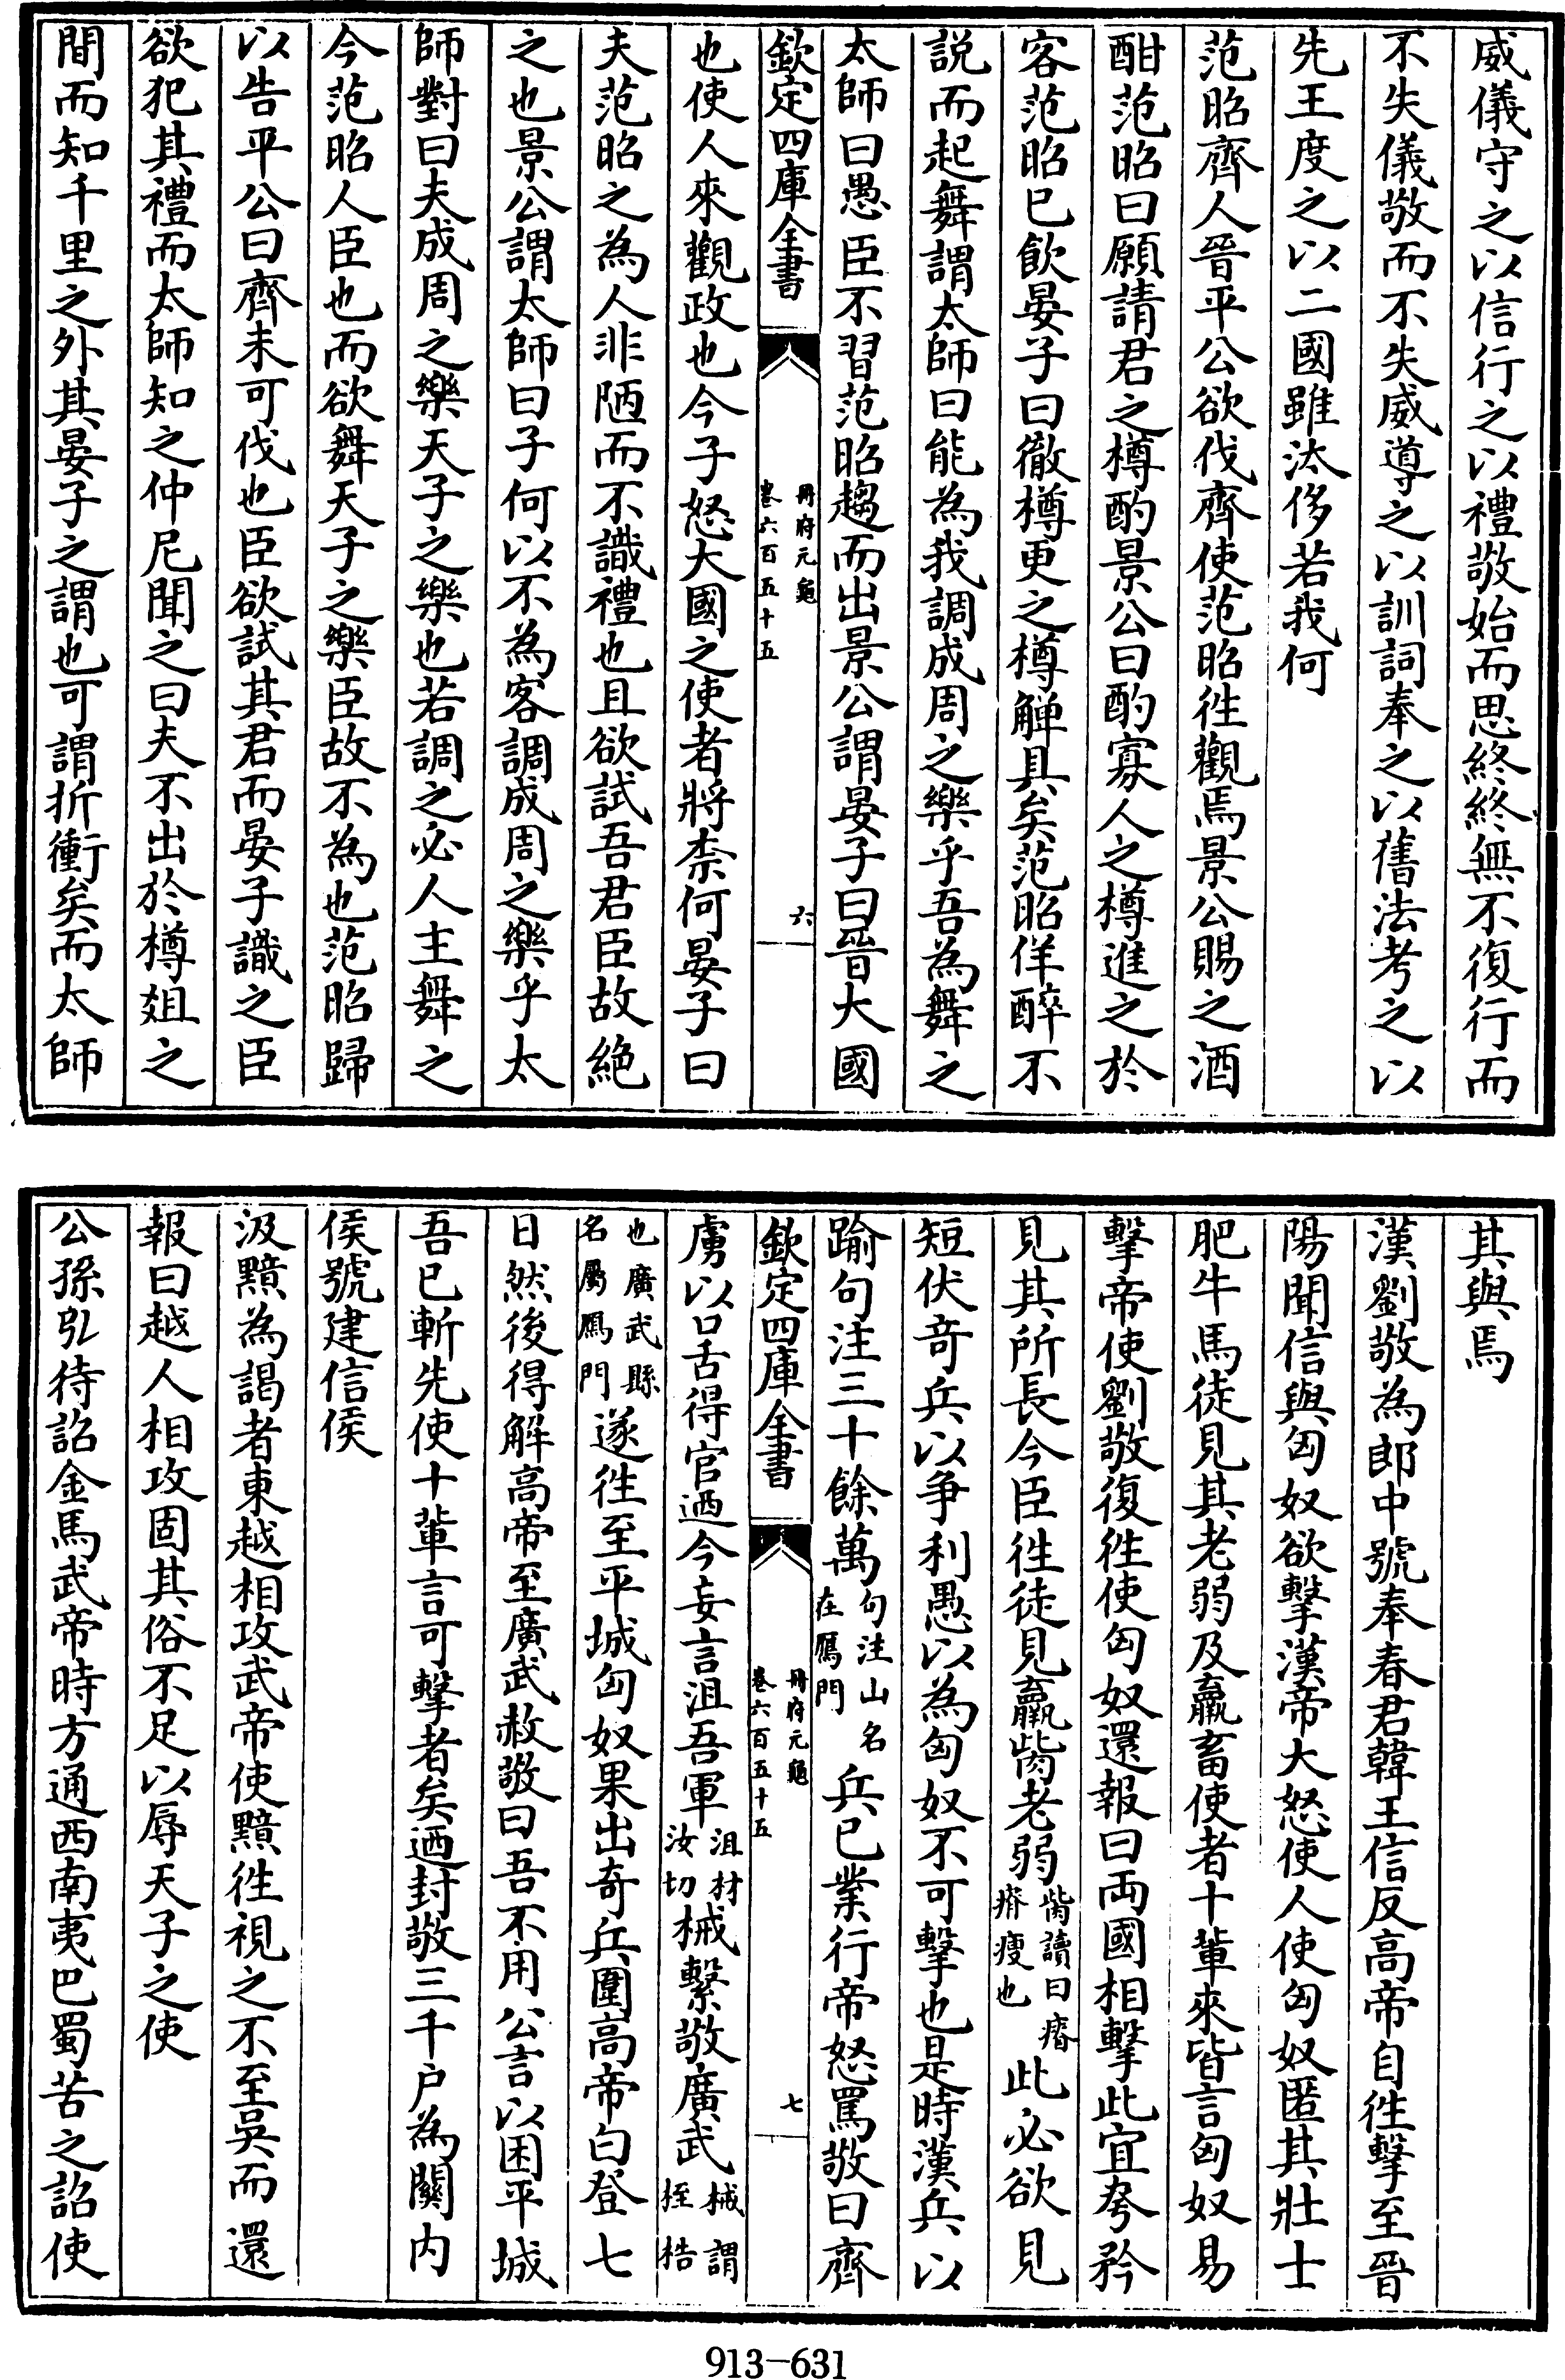 威儀守之以信行之以禮敬始而思終終無不復行而
不失儀敬而不失威導之以訓詞奉之以舊法考之以
先王度之以二國雖汰侈若我何
范昭齊人晉平公欲伐齊使范昭徃觀焉景公賜之酒
酣范昭曰願請君之樽酌景公曰酌寡人之樽進之於
客范昭已飲晏子曰徹樽更之樽觶具矣范昭佯醉不
説而起舞謂太師曰能為我調成周之樂乎吾為舞之
太師曰愚臣不習范昭趨而出景公謂晏子曰晉大國
欽定四庫全書
冊府元龜
卷六百五十五
六
也使人來觀政也今子怒大國之使者將柰何晏子曰
夫范昭之為人非陋而不識禮也且欲試吾君臣故絶
之也景公謂太師曰子何以不為客調成周之樂乎太
師對曰夫成周之樂天子之樂也若調之必人主舞之
今范昭人臣也而欲舞天子之樂臣故不為也范昭歸
以告平公曰齊未可伐也臣欲試其君而晏子識之臣
欲犯其禮而太師知之仲尼聞之曰夫不出於樽爼之
間而知千里之外其晏子之謂也可謂折衝矣而太師
其與焉
漢劉敬為郎中號奉春君韓王信反高帝自徃擊至晉
陽聞信與匈奴欲擊漢帝大怒使人使匈奴匿其壯士
肥牛馬徒見其老弱及羸畜使者十輩來皆言匈奴易
擊帝使劉敬復徃使匈奴還報曰兩國相擊此宜夸矜
見其所長今臣徃徒見羸胔老弱胔讀曰瘠瘠瘦也此必欲見
短伏竒兵以争利愚以為匈奴不可擊也是時漢兵以
踰句注三十餘萬句注山名在鴈門兵已業行帝怒罵敬曰齊
欽定四庫全書
冊府元龜
卷六百五十五
七
虜以口舌得官迺今妄言沮吾軍沮材汝切械繫敬廣武械謂桎梏
也廣武縣名屬鴈門遂徃至平城匈奴果出奇兵圍高帝白登七
日然後得解高帝至廣武赦敬曰吾不用公言以困平城
吾已斬先使十輩言可擊者矣迺封敬三千户為關内
侯號建信侯
汲黯為謁者東越相攻武帝使黯徃視之不至吳而還
報曰越人相攻固其俗不足以辱天子之使
公孫弘待詔金馬武帝時方通西南夷巴蜀苦之詔使
913-631